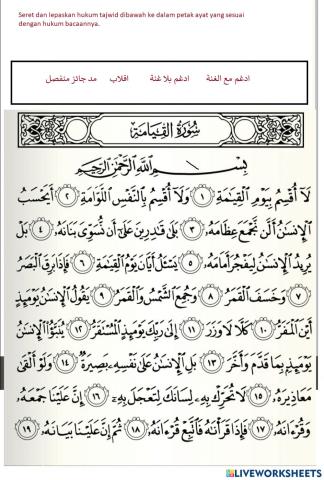 Seret dan lepaskan hukum tajwid dibawah ke dalam petak ayat yang sesuai
dengan hukum bacaannya.
ادغم مع الغنة ادغم بلا غنة اقلاب مد جائز منفصل
سُورَةُ القِيَامَةِ
بِسْمِ اللَّهِ الرَّحْمَٰنِ الرَّحِيمِ
لَآ أُقْسِمُ بِيَوْمِ ٱلْقِيَٰمَةِ ١ وَلَآ أُقْسِمُ بِٱلنَّفْسِ ٱللَّوَّامَةِ ٢ أَيَحْسَبُ
ٱلْإِنسَٰنُ أَلَّن نَّجْمَعَ عِظَامَهُۥ ٣ بَلَىٰ قَٰدِرِينَ عَلَىٰٓ أَن نُّسَوِّىَ بَنَانَهُۥ ٤ بَلْ
يُرِيدُ ٱلْإِنسَٰنُ لِيَفْجُرَ أَمَامَهُۥ ٥ يَسْـَٔلُ أَيَّانَ يَوْمُ ٱلْقِيَٰمَةِ ٦ فَإِذَا بَرِقَ ٱلْبَصَرُ
٧ وَخَسَفَ ٱلْقَمَرُ ٨ وَجُمِعَ ٱلشَّمْسُ وَٱلْقَمَرُ ٩ يَقُولُ ٱلْإِنسَٰنُ يَوْمَئِذٍ
أَيْنَ ٱلْمَفَرُّ ١٠ كَلَّا لَا وَزَرَ ١١ إِلَىٰ رَبِّكَ يَوْمَئِذٍ ٱلْمُسْتَقَرُّ ١٢ يُنَبَّؤُا۟ ٱلْإِنسَٰنُ
يَوْمَئِذٍۭ بِمَا قَدَّمَ وَأَخَّرَ ١٣ بَلِ ٱلْإِنسَٰنُ عَلَىٰ نَفْسِهِۦ بَصِيرَةٌ ١٤ وَلَوْ أَلْقَىٰ
مَعَاذِيرَهُۥ ١٥ لَا تُحَرِّكْ بِهِۦ لِسَانَكَ لِتَعْجَلَ بِهِۦٓ ١٦ إِنَّ عَلَيْنَا جَمْعَهُۥ
وَقُرْءَانَهُۥ ١٧ فَإِذَا قَرَأْنَٰهُ فَٱتَّبِعْ قُرْءَانَهُۥ ١٨ ثُمَّ إِنَّ عَلَيْنَا بَيَانَهُۥ ١٩
LIVEWORKSHEETS